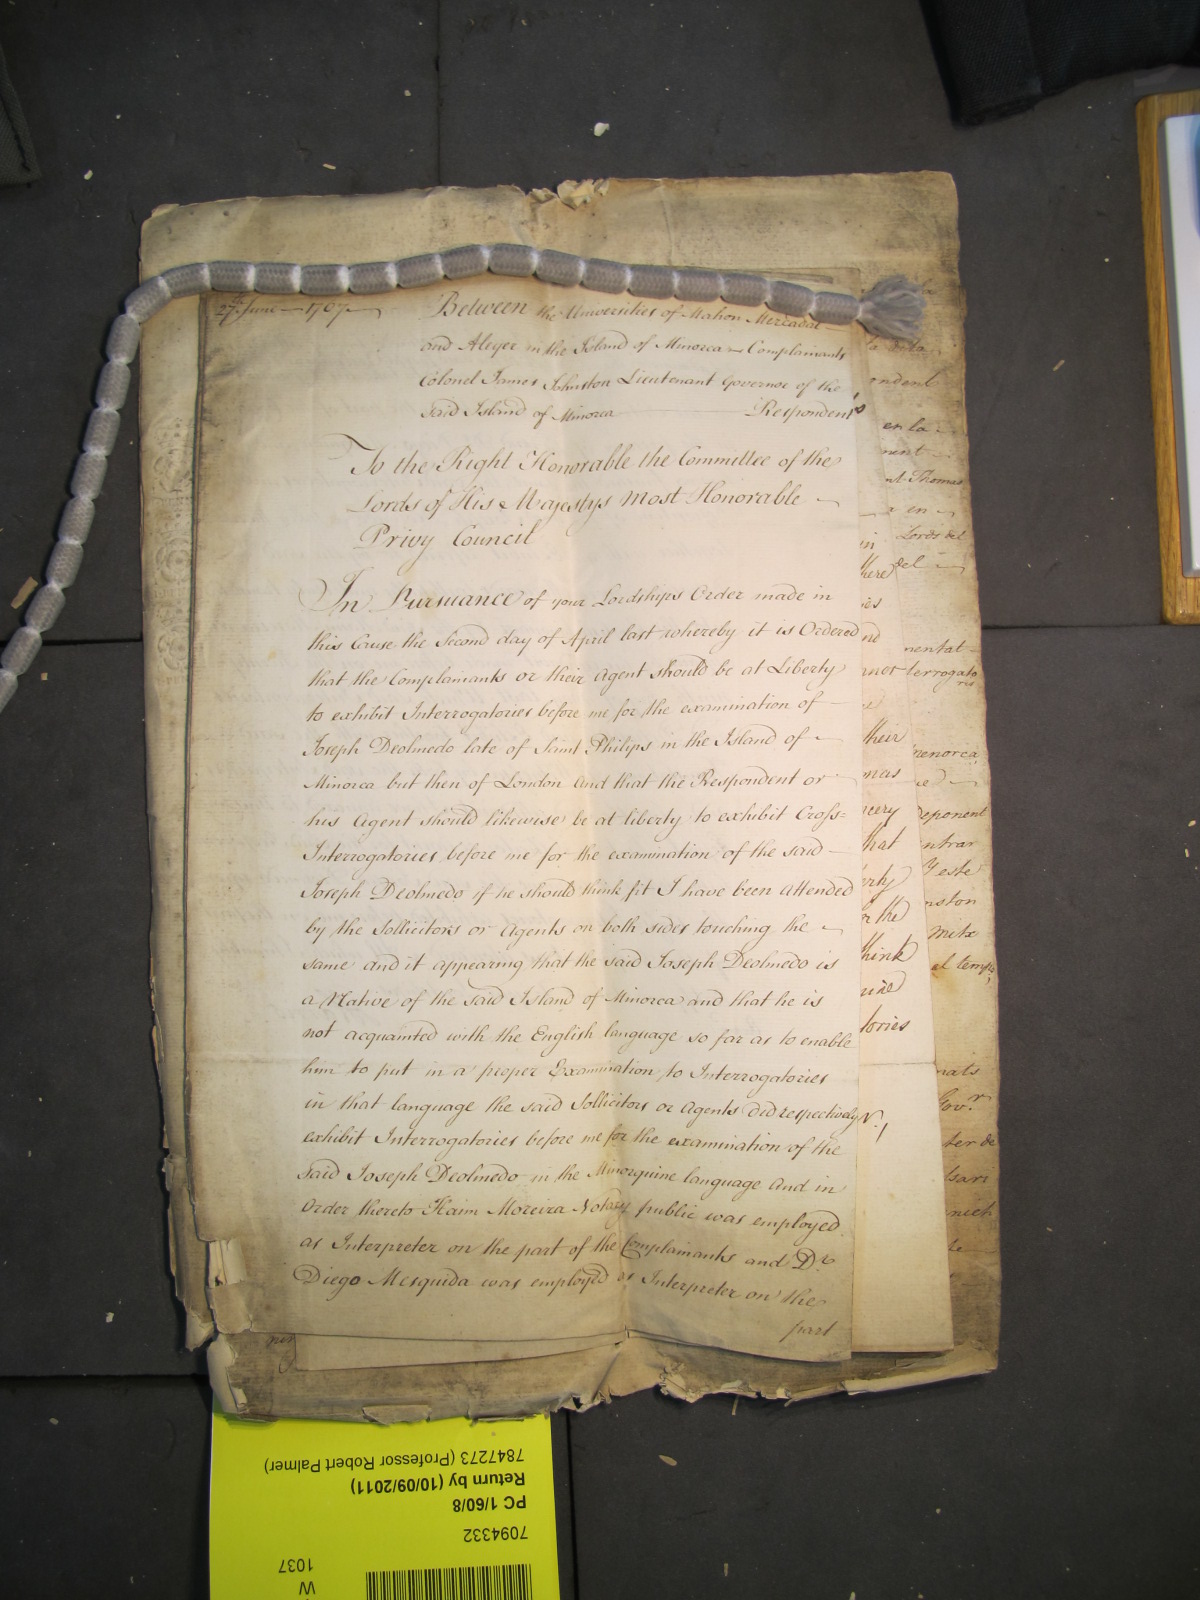 27th. June — 1767
Between the Universities of Mahon Mercadal
and Alayor in the Island of Minorca — Complainants
Colonel James Johnston Lieutenant Governor of the
said Island of Minorca Respondent
To the Right Honorable the Committee of the
Lords of His Majestys Most Honorable
Privy Council
In Pursuance of your Lordships Order made in
this Cause the Second day of April last whereby it is Ordered
that the Complainants or their Agent should be at Liberty
to exhibit Interrogatories before me for the examination of
Joseph Deolmedo late of Saint Philips in the Island of
Minorca but then of London And that the Respondent or
his Agent should likewise be at liberty to exhibit Cross=
Interrogatories before me for the examination of the said
Joseph Deolmedo if he should think fit I have been attended
by the Sollicitors or Agents on both sides touching the
same and it appearing that the said Joseph Deolmedo is
a Native of the said Island of Minorca and that he is
not acquainted with the English language so far as to enable
him to put in a proper Examination to Interrogatories
in that language the said Sollicitors or Agents did respectively
exhibit Interrogatories before me for the examination of the
said Joseph Deolmedo in the Minorquine language And in
Order thereto Haim Moreira Notary public was employed
as Interpreter on the part of the Complainants and Dr.
Diego Mesquida was employed as Interpreter on the
part
ondent
en la
nt Thomas
en
Lords del
del
here
nentat
terrogato
ris
their
menorca
mas
deponent
that
ntrar
Y este
nston
the
Mitx
think
el temps
tories
nats
Govr.
ter de
sari
7847273 (Professor Robert Palmer)
Return by (10/09/2011)
PC 1/60/8
7094332
1037
W